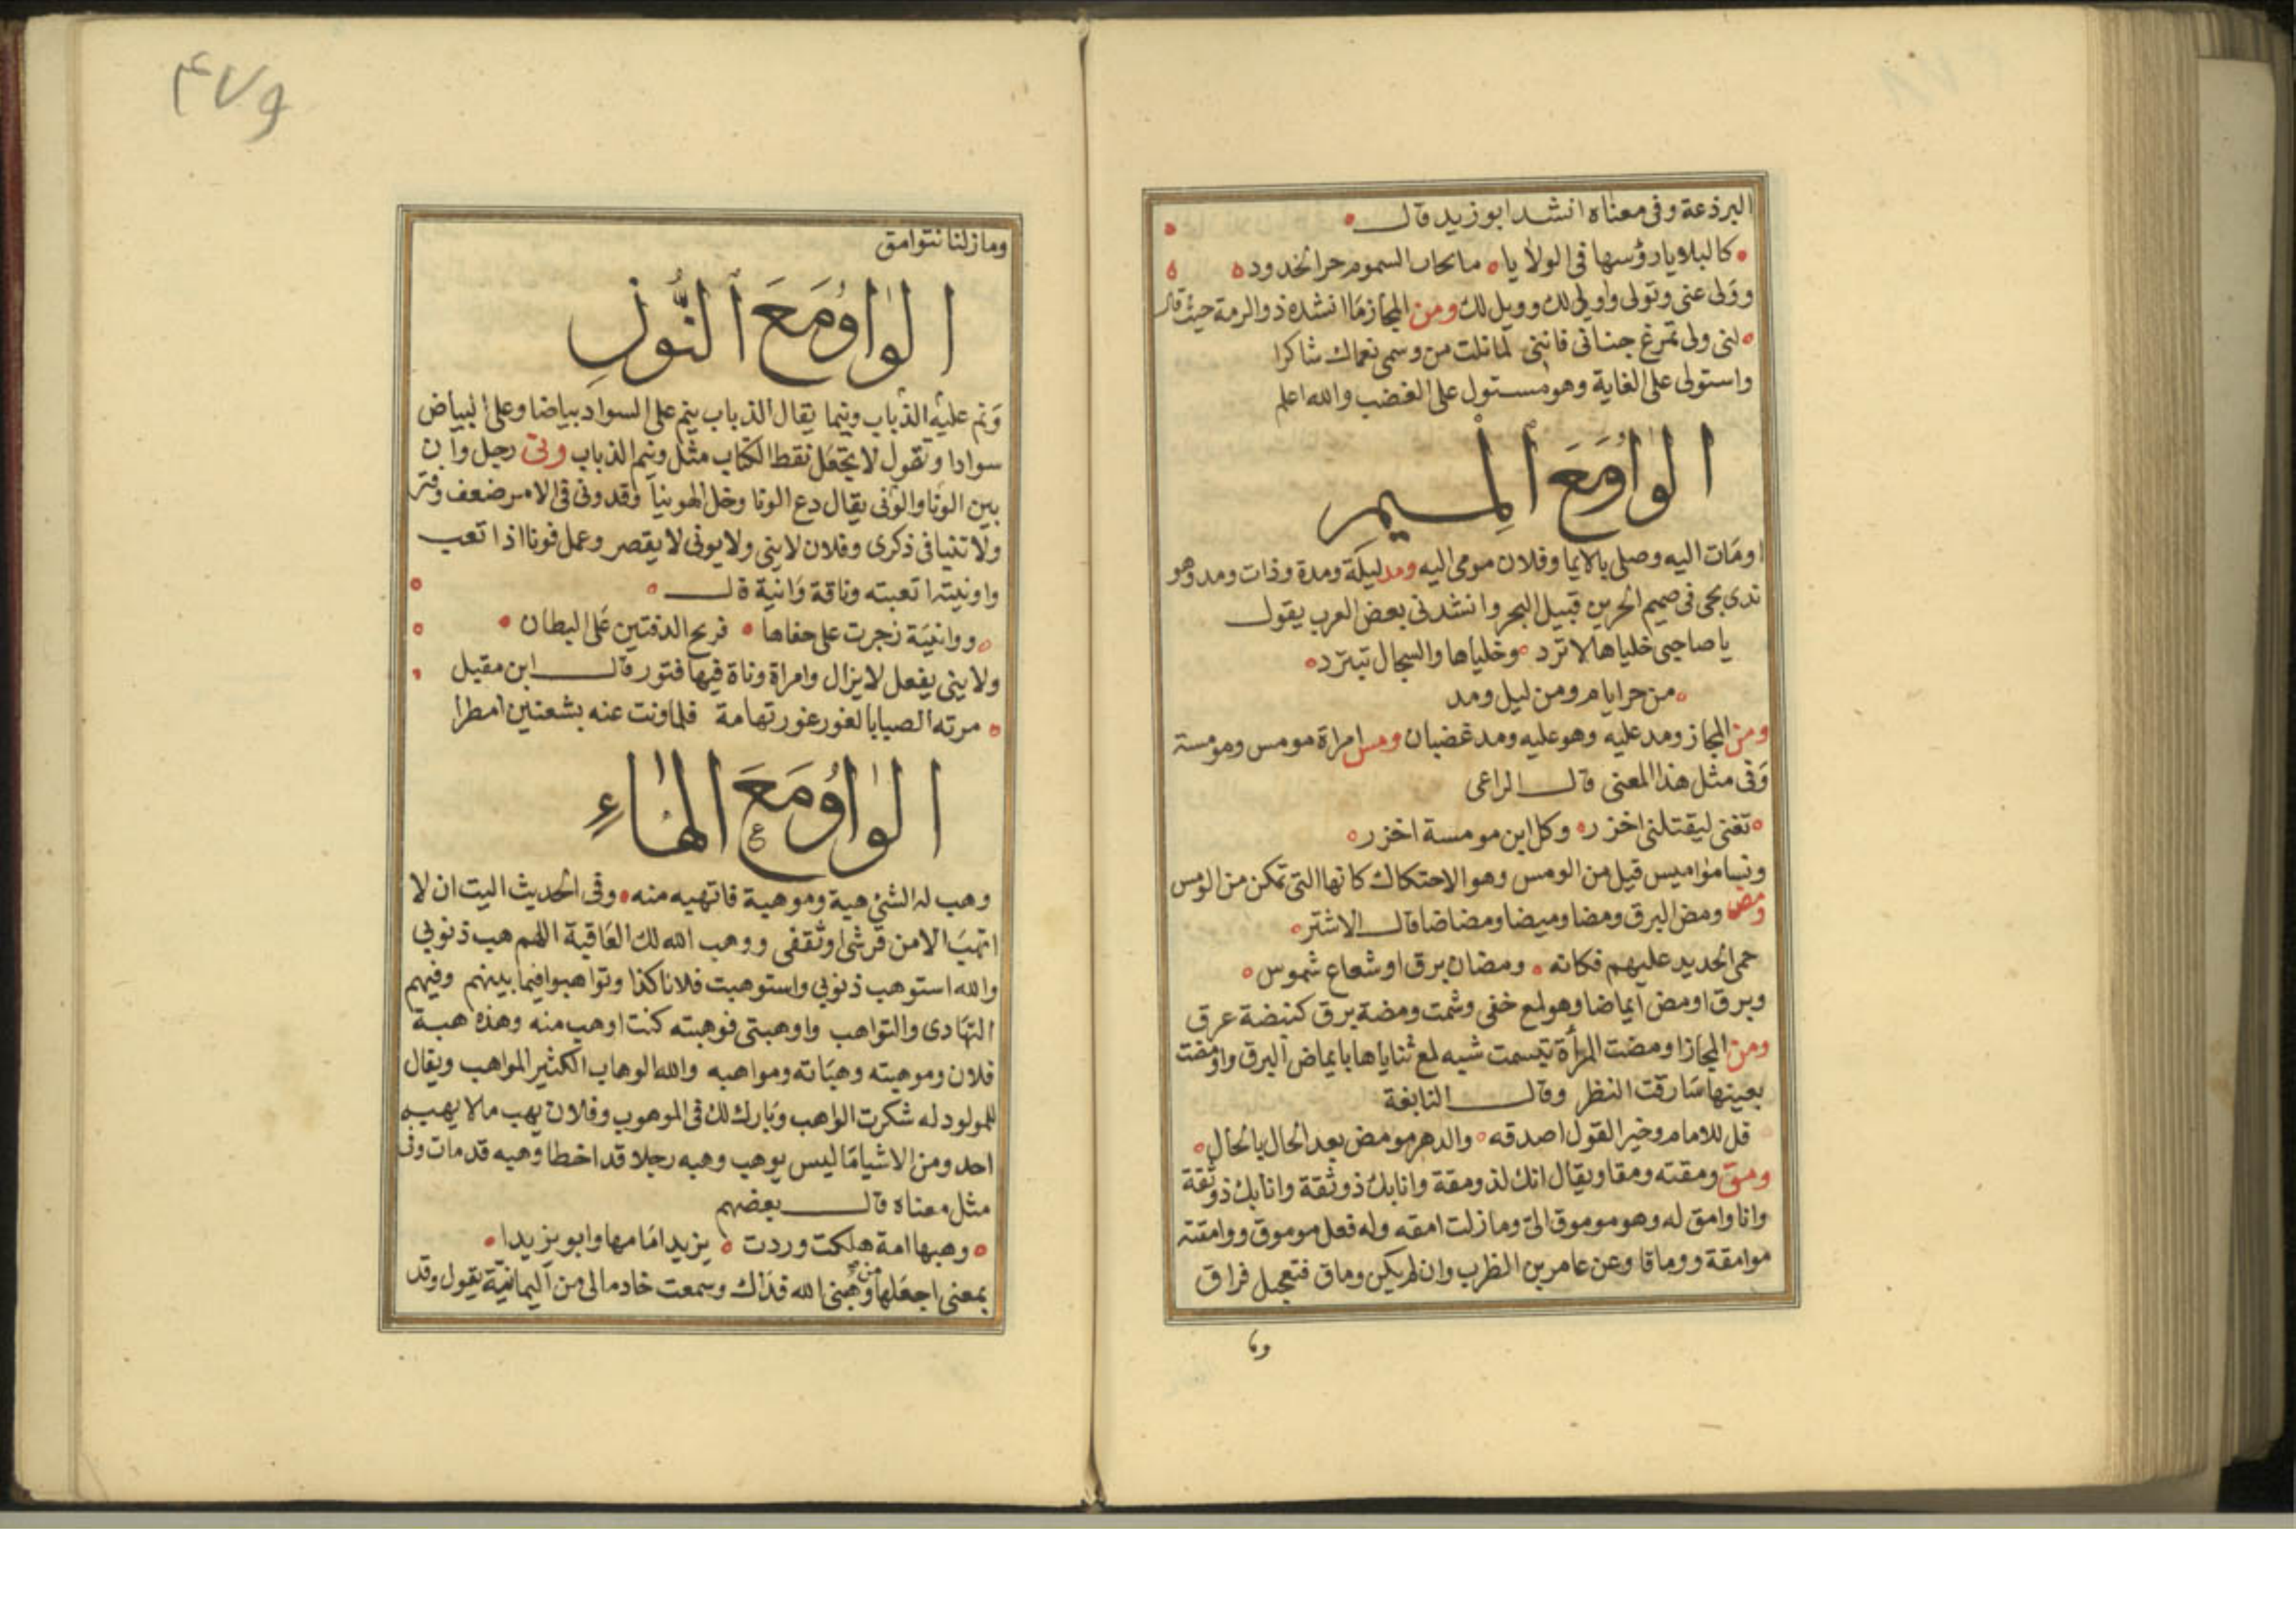 البرذعة وفى معناه انشد ابو زيد قال
كالبلايا رؤسها فى الولايا مانحات السموم حر الخدود
وولى عنى وتولى واولى لك وويل لك ومن المجاز ما انشده ذو الرمة حيث قال
لنى ولى تمرغ جنانى فاننى لما نلت من وسمى نعماك شاكرا
واستولى على الغاية وهو مستول على الغضب والله اعلم
الواو مع الميم
اومات اليه وصلى بالايما وفلان مومى اليه ومد ليلة ومدة وذات ومد وهو
ندى يجى فى صميم الحر من قبيل البحر وانشدنى بعض العرب يقول
يا صاحبى خلياها لا ترد وخلياها والسجال تبترد
من حر ايام ومن ليل ومد
ومن المجاز ومد عليه وهو عليه ومد غضبان ومس امراة مومس ومومسة
وفى مثل هذا المعنى قال الراعى
تغنى ليقتلنى اخزر وكل ابن مومسة اخزر
ونسا مواميس قيل من الومس وهو الاحتكاك كانها التى تمكن من الومس
ومض ومض البرق ومضا وميضا ومضاضا قال الاشتر
حمى الحديد عليهم فكانه ومضان برق او شعاع شموس
وبرق اومض ايماضا وهو لمع خفى وشمت ومضة برق كنبضة عرق
ومن المجاز اومضت المرأة تبسمت شبه لمع ثناياها بايماض البرق واومضت
بعينها سارقت النظر وقال النابغة
قل للامام وخير القول اصدقه والدهر مومض بعد الحال بالحال
ومق ومقته ومقا ويقال انك لذو مقة وانا بك ذو ثقة وانا بك ذو ثقة
وانا وامق له وهو موموق الى وما زلت امقه وله فعل موموق ووامقته
موامقة ووماقا وعن عامر بن الظرب وان لم يكن وماق فتعجيل فراق
وما
٤٧٩
وما زلنا نتوامق
الواو مع النون
ونم عليه الذباب ونيما يقال الذباب ينم على السواد بياضا وعلى البياض
سوادا وتقول لا تجعل نقط الكتاب مثل ونيم الذباب ونى رجل وان
بين الونا والونى يقال دع الونا وخل الهوينا وقد ونى فى الامر ضعف وفتر
ولا تنيا فى ذكرى وفلان لا ينى ولا يونى لا يقصر وعمل فونا اذا تعب
واونيته اتعبته وناقة وانية قال
ووانية زجرت على حفاها فريح الدفتين على البطان
ولا ينى يفعل لا يزال وامراة وناة فيها فتور قال ابن مقيل
مرته الصبا بالغور غور تهامة فلما ونت عنه بشعنين امطرا
الواو مع الهاء
وهب له الشئ هبة وموهبة فاتهبه منه وفى الحديث اليت ان لا
اتهب الا من قرشى او ثقفى ووهب الله لك العاقبة اللهم هب ذنوبى
والله استوهب ذنوبى واستوهبت فلانا كذا وتواهبوا فيما بينهم وفيهم
التهادى والتواهب واوهبتى فوهبته كنت اوهب منه وهذه هبة
فلان وموهبته وهباته ومواهبه والله الوهاب الكثير المواهب ويقال
للمولود له شكرت الواهب وبارك لك فى الموهوب وفلان يهب ما لا يهبه
احد ومن الاشيا ما ليس يوهب وهبه رجلا قد اخطا وهبه قد مات وفى
مثل معناه قال بعضهم
وهبها امة هلكت وردت يزيد امامها وابو يزيدا
بمعنى اجعلها من وهبنى الله فداك وسمعت خادما لى من اليمانية يقول وقد